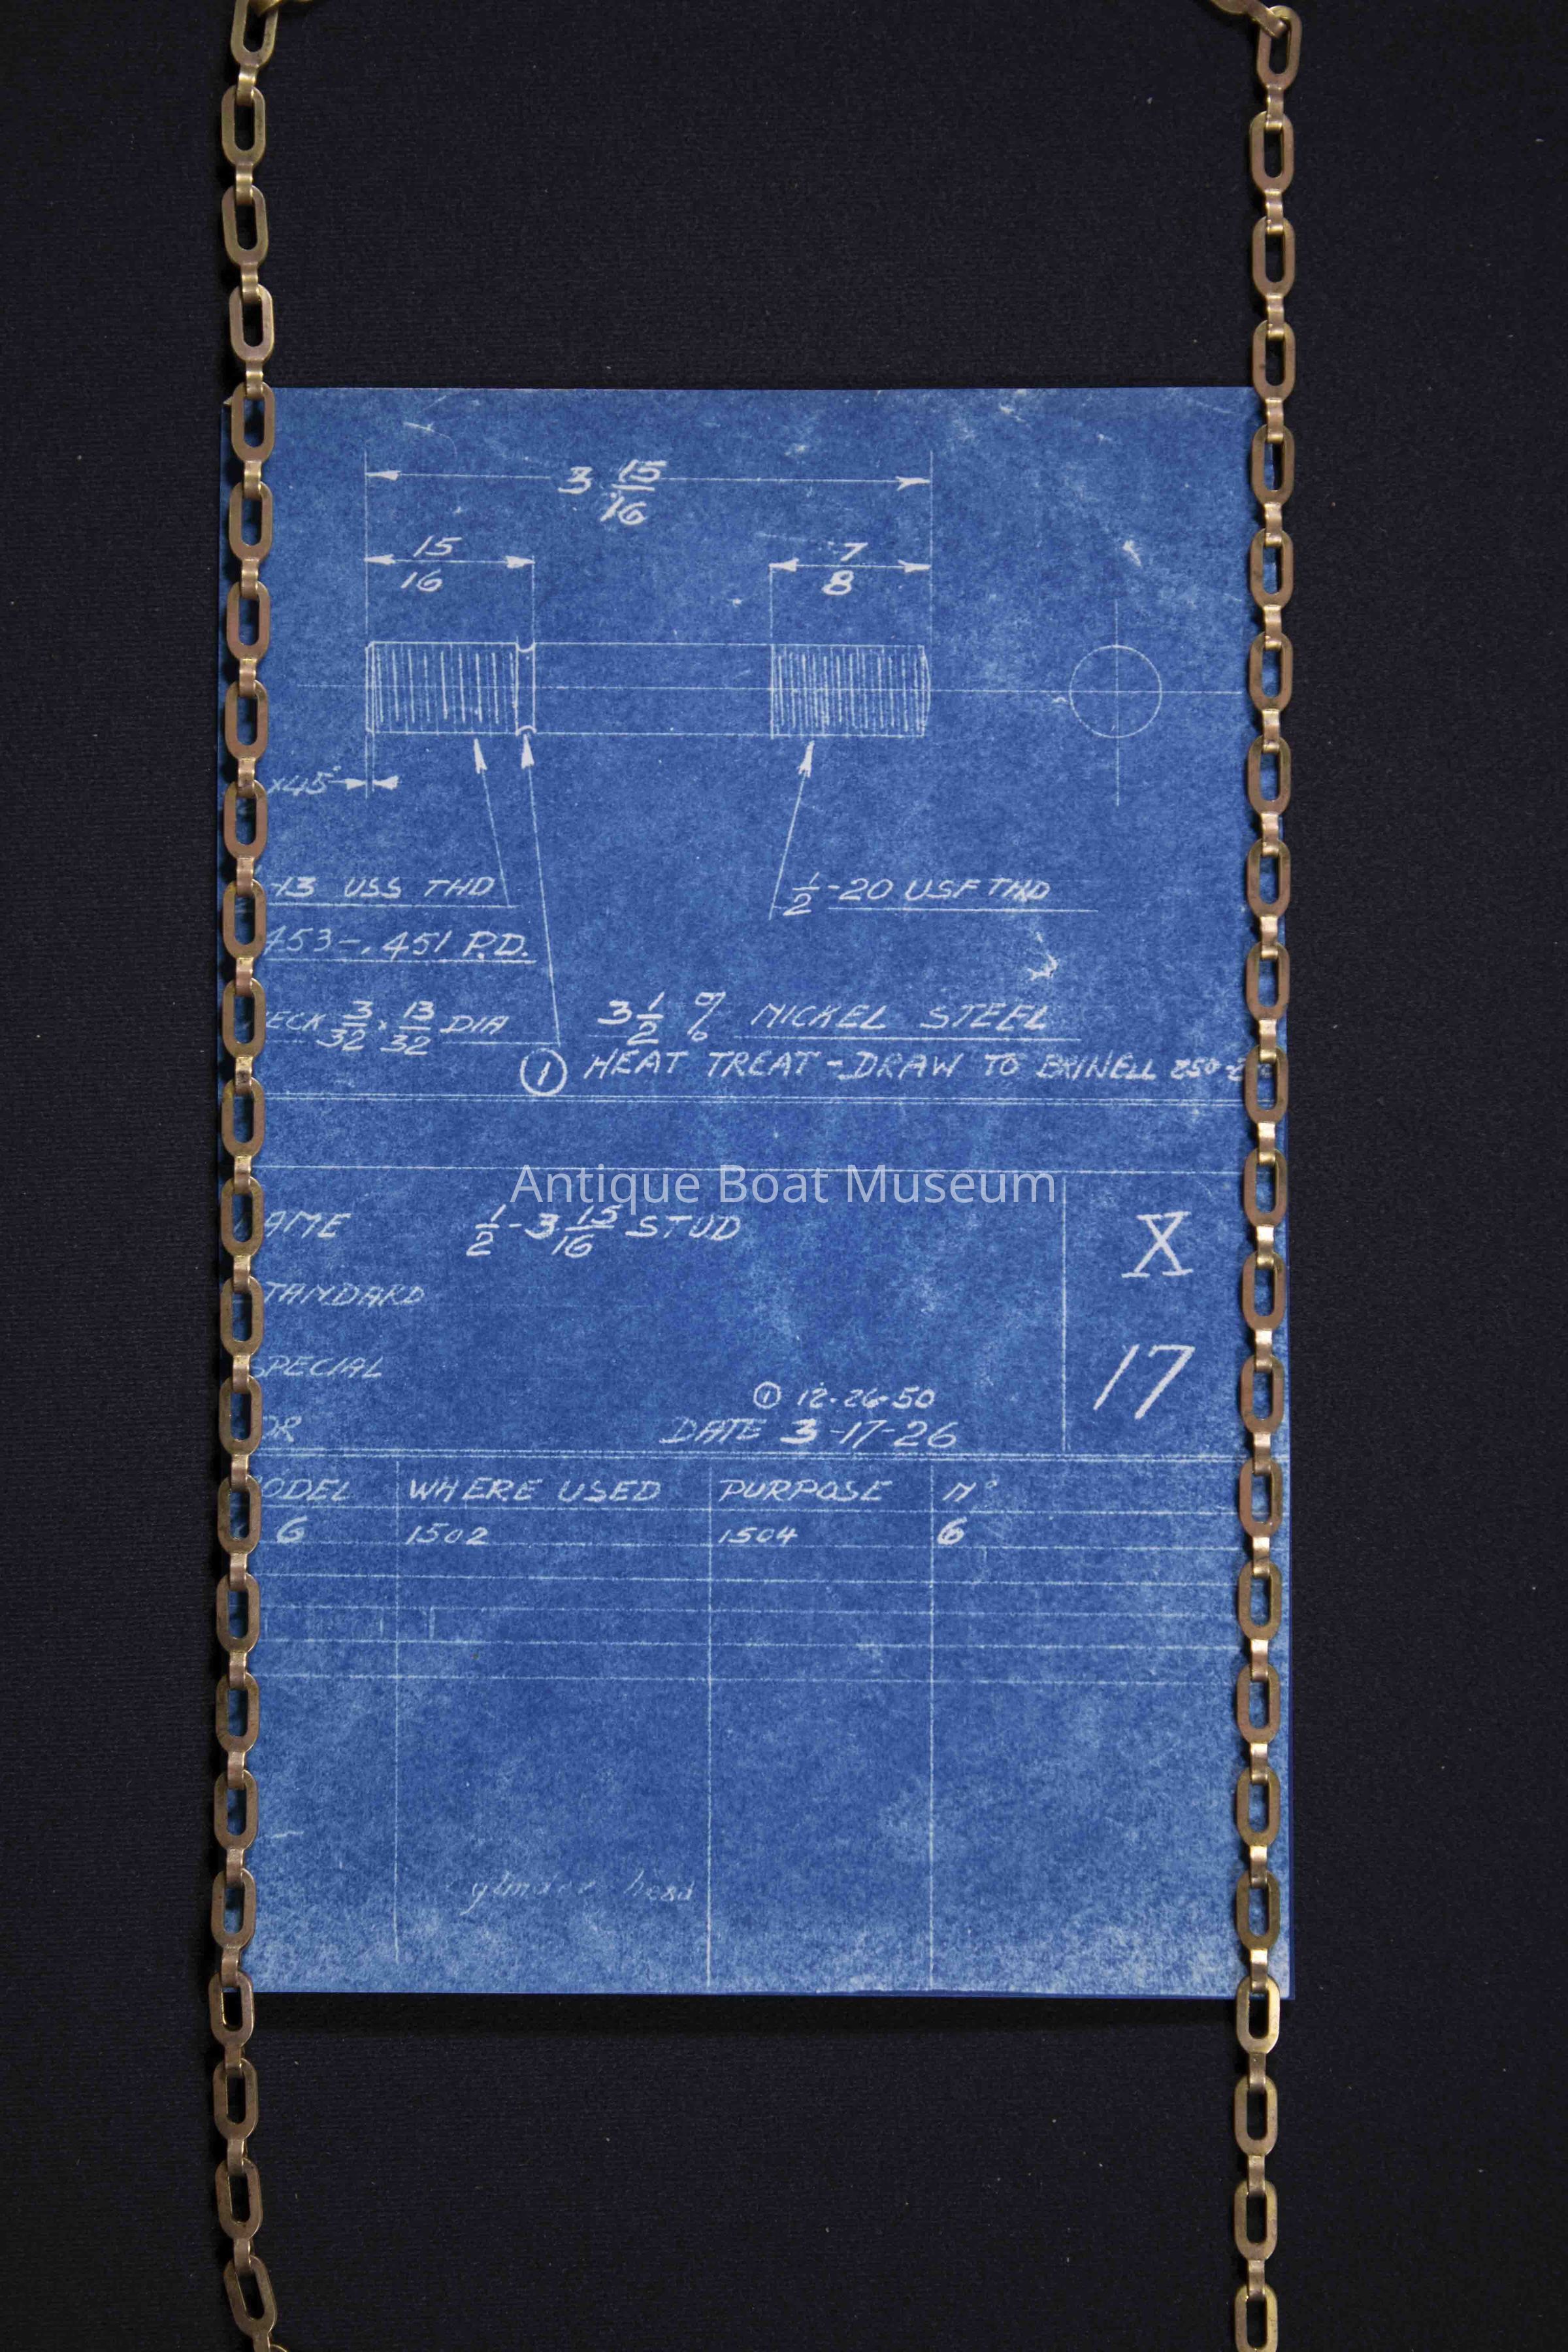 3 15/16
15/16
7/8
x45°
-13 USS THD
1/2-20 USF THD
453-.451 P.D.
ECK 3/32 x 13/32 DIA
3 1/2 % NICKEL STEEL
① HEAT TREAT-DRAW TO BRINELL 250-
Antique Boat Museum
AME 1/2-3 15/16 STUD
X
TANDARD
17
SPECIAL
① 12-26-50
OR
DATE 3-17-26
ODEL WHERE USED PURPOSE Nº
6 1502 1504 6
head